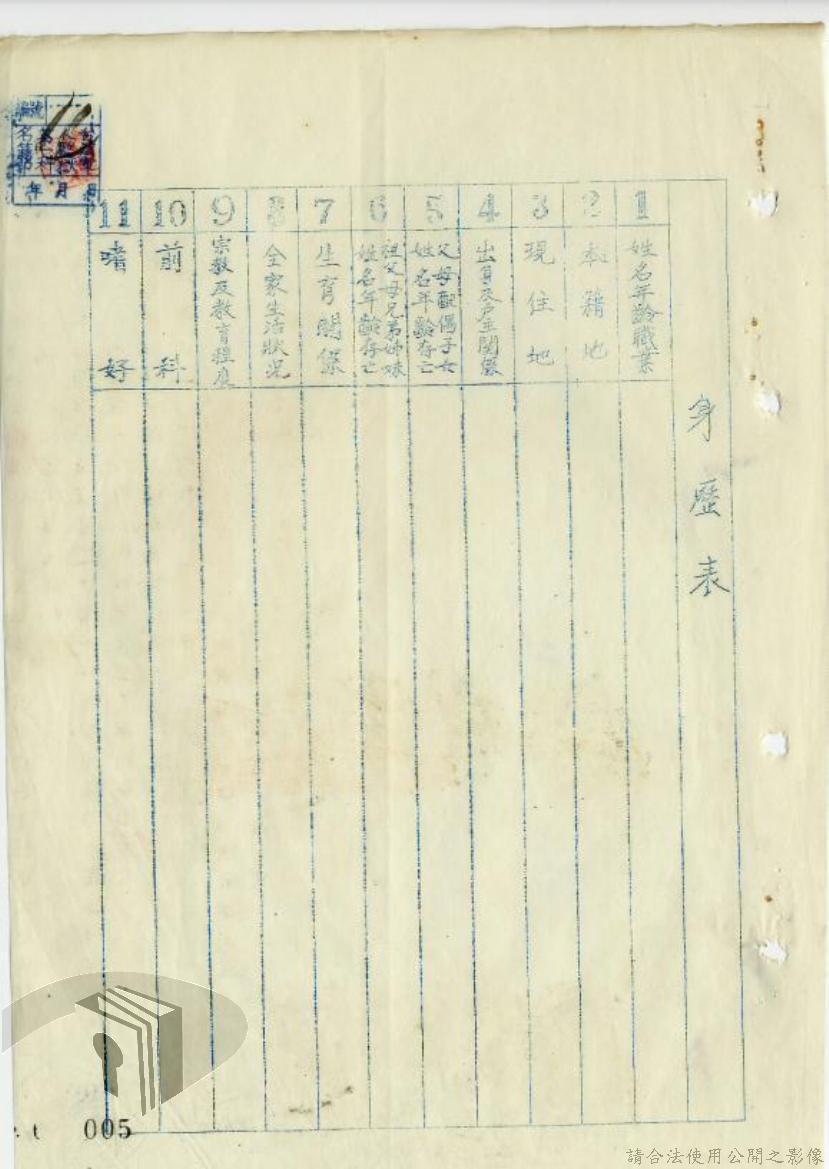 身歷表
1
姓名年齡職業
2
本籍地
3
現住地
4
出身及戶主關係
5
父母配偶子女
姓名年齡存亡
6
祖父母兄弟姊妹
姓名年齡存亡
7
生育關係
8
全家生活狀況
9
宗教及教育程度
10
前科
11
嗜好
編號
名籍
年 月 日
005
請合法使用公開之影像